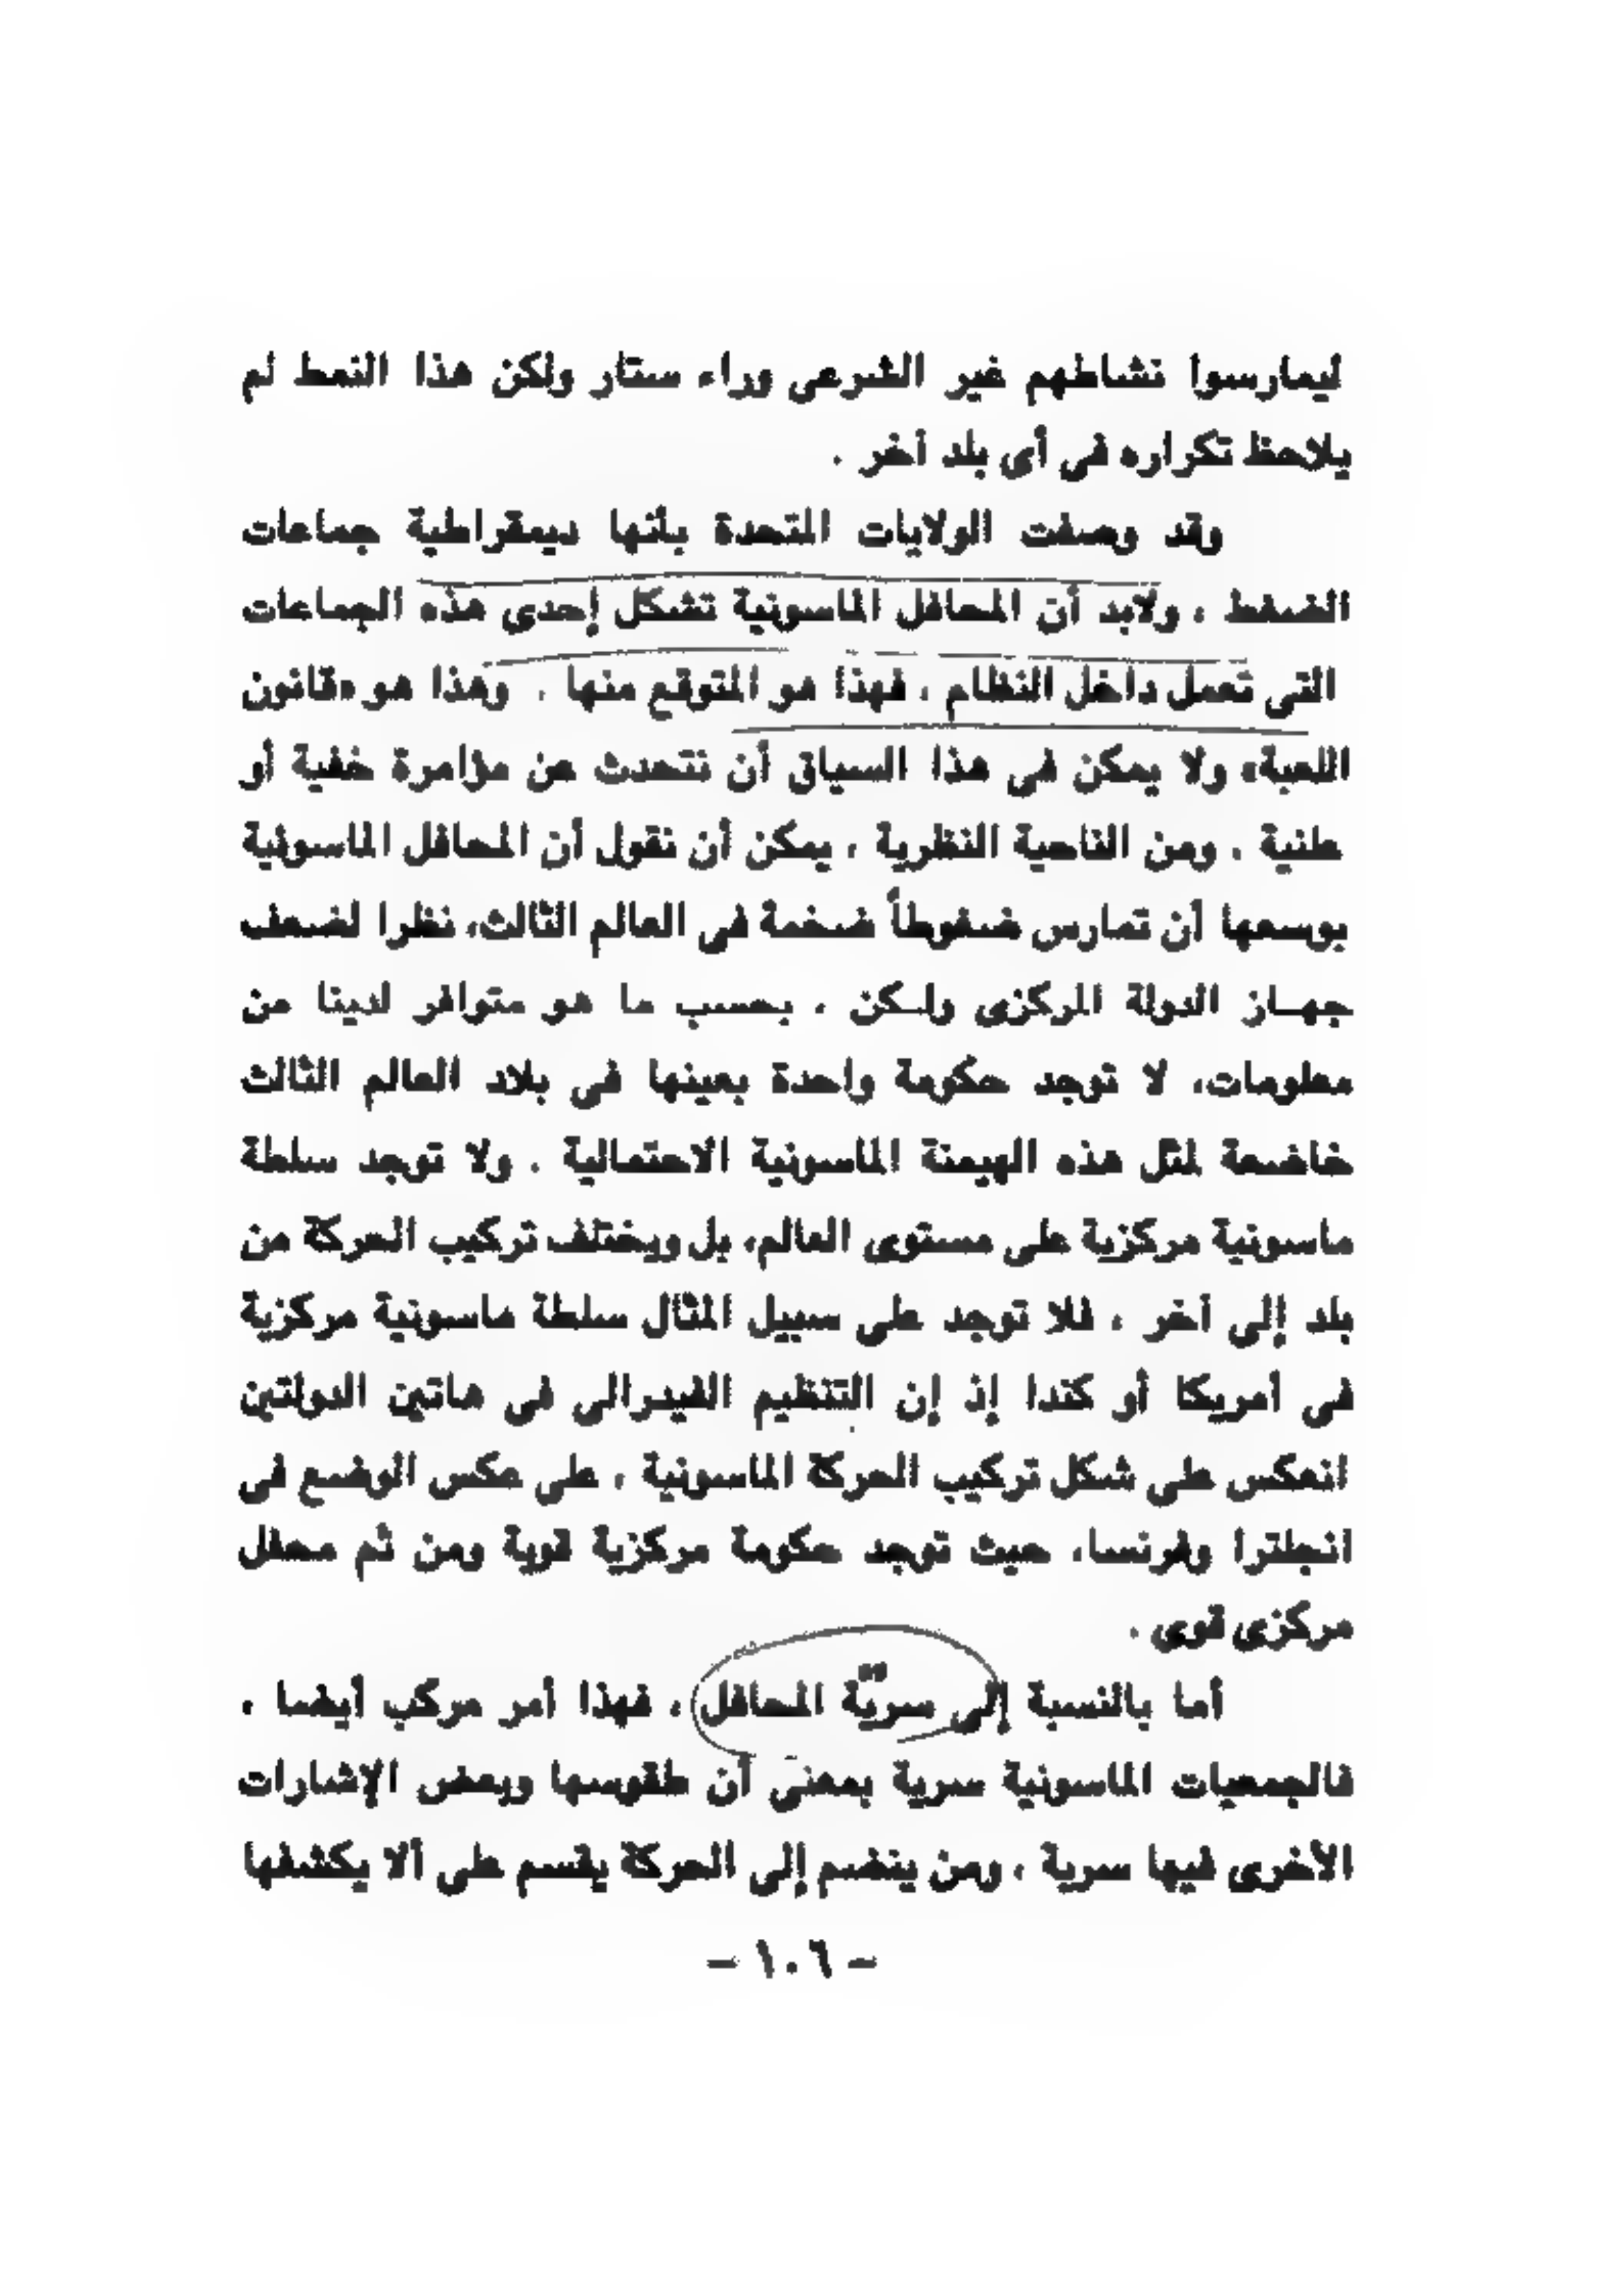 ليمارسوا نشاطهم غير الشرعى وراء ستار ولكن هذا النمط لم
يلاحظ تكراره فى أى بلد آخر .
وقد وصفت الولايات المتحدة بأنها ديمقراطية جماعات
الضغط ، ولابد أن المحافل الماسونية تشكل إحدى هذه الجماعات
التى تعمل داخل النظام ، فهذا هو المتوقع منها . وهذا هو «قانون
اللعبة» ولا يمكن فى هذا السياق أن نتحدث عن مؤامرة خفية أو
علنية . ومن الناحية النظرية ، يمكن أن نقول أن المحافل الماسونية
بوسعها أن تمارس ضغوطاً ضخمة فى العالم الثالث، نظرا لضعف
جهاز الدولة المركزى ولكن ، بحسب ما هو متوافر لدينا من
معلومات، لا توجد حكومة واحدة بعينها فى بلاد العالم الثالث
خاضعة لمثل هذه الهيمنة الماسونية الاحتمالية . ولا توجد سلطة
ماسونية مركزية على مستوى العالم، بل ويختلف تركيب الحركة من
بلد إلى آخر ، فلا توجد على سبيل المثال سلطة ماسونية مركزية
فى أمريكا أو كندا إذ إن التنظيم الفيدرالى فى هاتين الدولتين
انعكس على شكل تركيب الحركة الماسونية ، على عكس الوضع فى
انجلترا وفرنسا، حيث توجد حكومة مركزية قوية ومن ثم محفل
مركزى قوى .
أما بالنسبة إلى سريّة المحافل ، فهذا أمر مركب أيضا ،
فالجمعيات الماسونية سرية بمعنى أن طقوسها وبعض الإشارات
الأخرى فيها سرية ، ومن ينضم إلى الحركة يقسم على ألا يكشفها
– ١٠٦ –